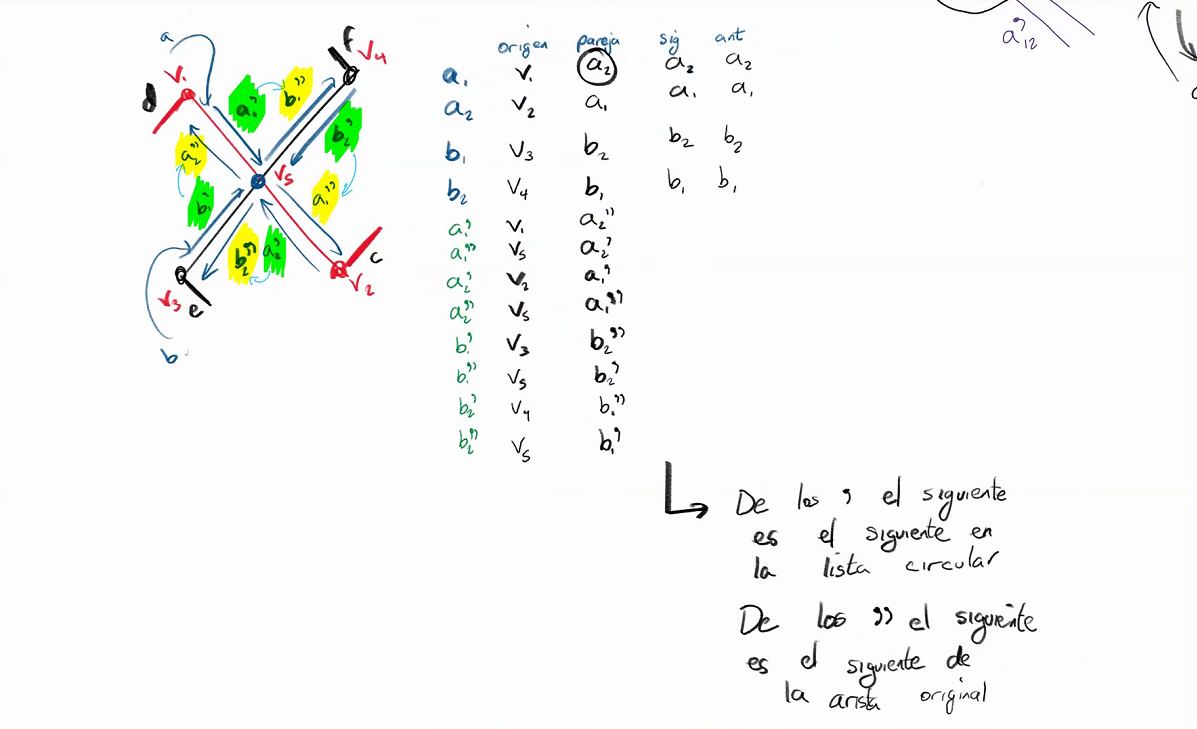 a'12
a
f
V4
V1
d
a1'
b1''
b2'
a2''
V5
a1''
b1'
b2''
a2'
c
V2
V3
e
b
origen pareja sig ant
a1 V1 a2 a2 a2
a2 V2 a1 a1 a1
b1 V3 b2 b2 b2
b2 V4 b1 b1 b1
a1' V1 a2''
a1'' V5 a2'
a2' V2 a1'
a2'' V5 a1''
b1' V3 b2''
b1'' V5 b2'
b2' V4 b1''
b2'' V5 b1'
De los ' el siguiente
es el siguiente en
la lista circular
De los '' el siguiente
es el siguiente de
la arista original